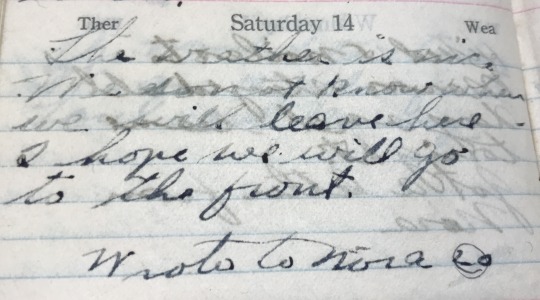 Ther Saturday 14 Wea
The weather is nice.
We don ot know when
we will leave here -
I hope we will go
to the front.
Wroto to Nora 20